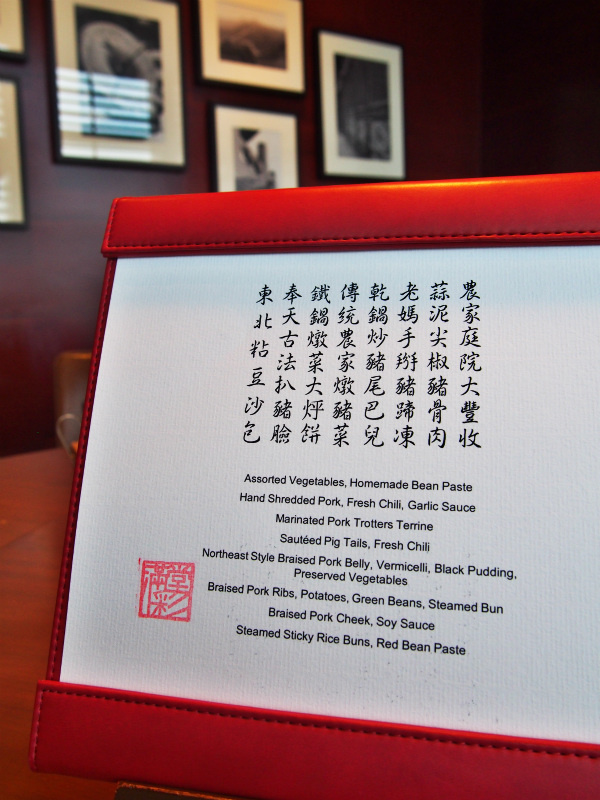 農家庭院大豐收
蒜泥尖椒豬骨肉
老媽手掰豬蹄凍
乾鍋炒豬尾巴兒
傳統農家燉豬菜
鐵鍋燉菜大烀餅
奉天古法扒豬臉
東北粘豆沙包
Assorted Vegetables, Homemade Bean Paste
Hand Shredded Pork, Fresh Chili, Garlic Sauce
Marinated Pork Trotters Terrine
Sautéed Pig Tails, Fresh Chili
Northeast Style Braised Pork Belly, Vermicelli, Black Pudding,
Preserved Vegetables
Braised Pork Ribs, Potatoes, Green Beans, Steamed Bun
Braised Pork Cheek, Soy Sauce
Steamed Sticky Rice Buns, Red Bean Paste
滿堂彩